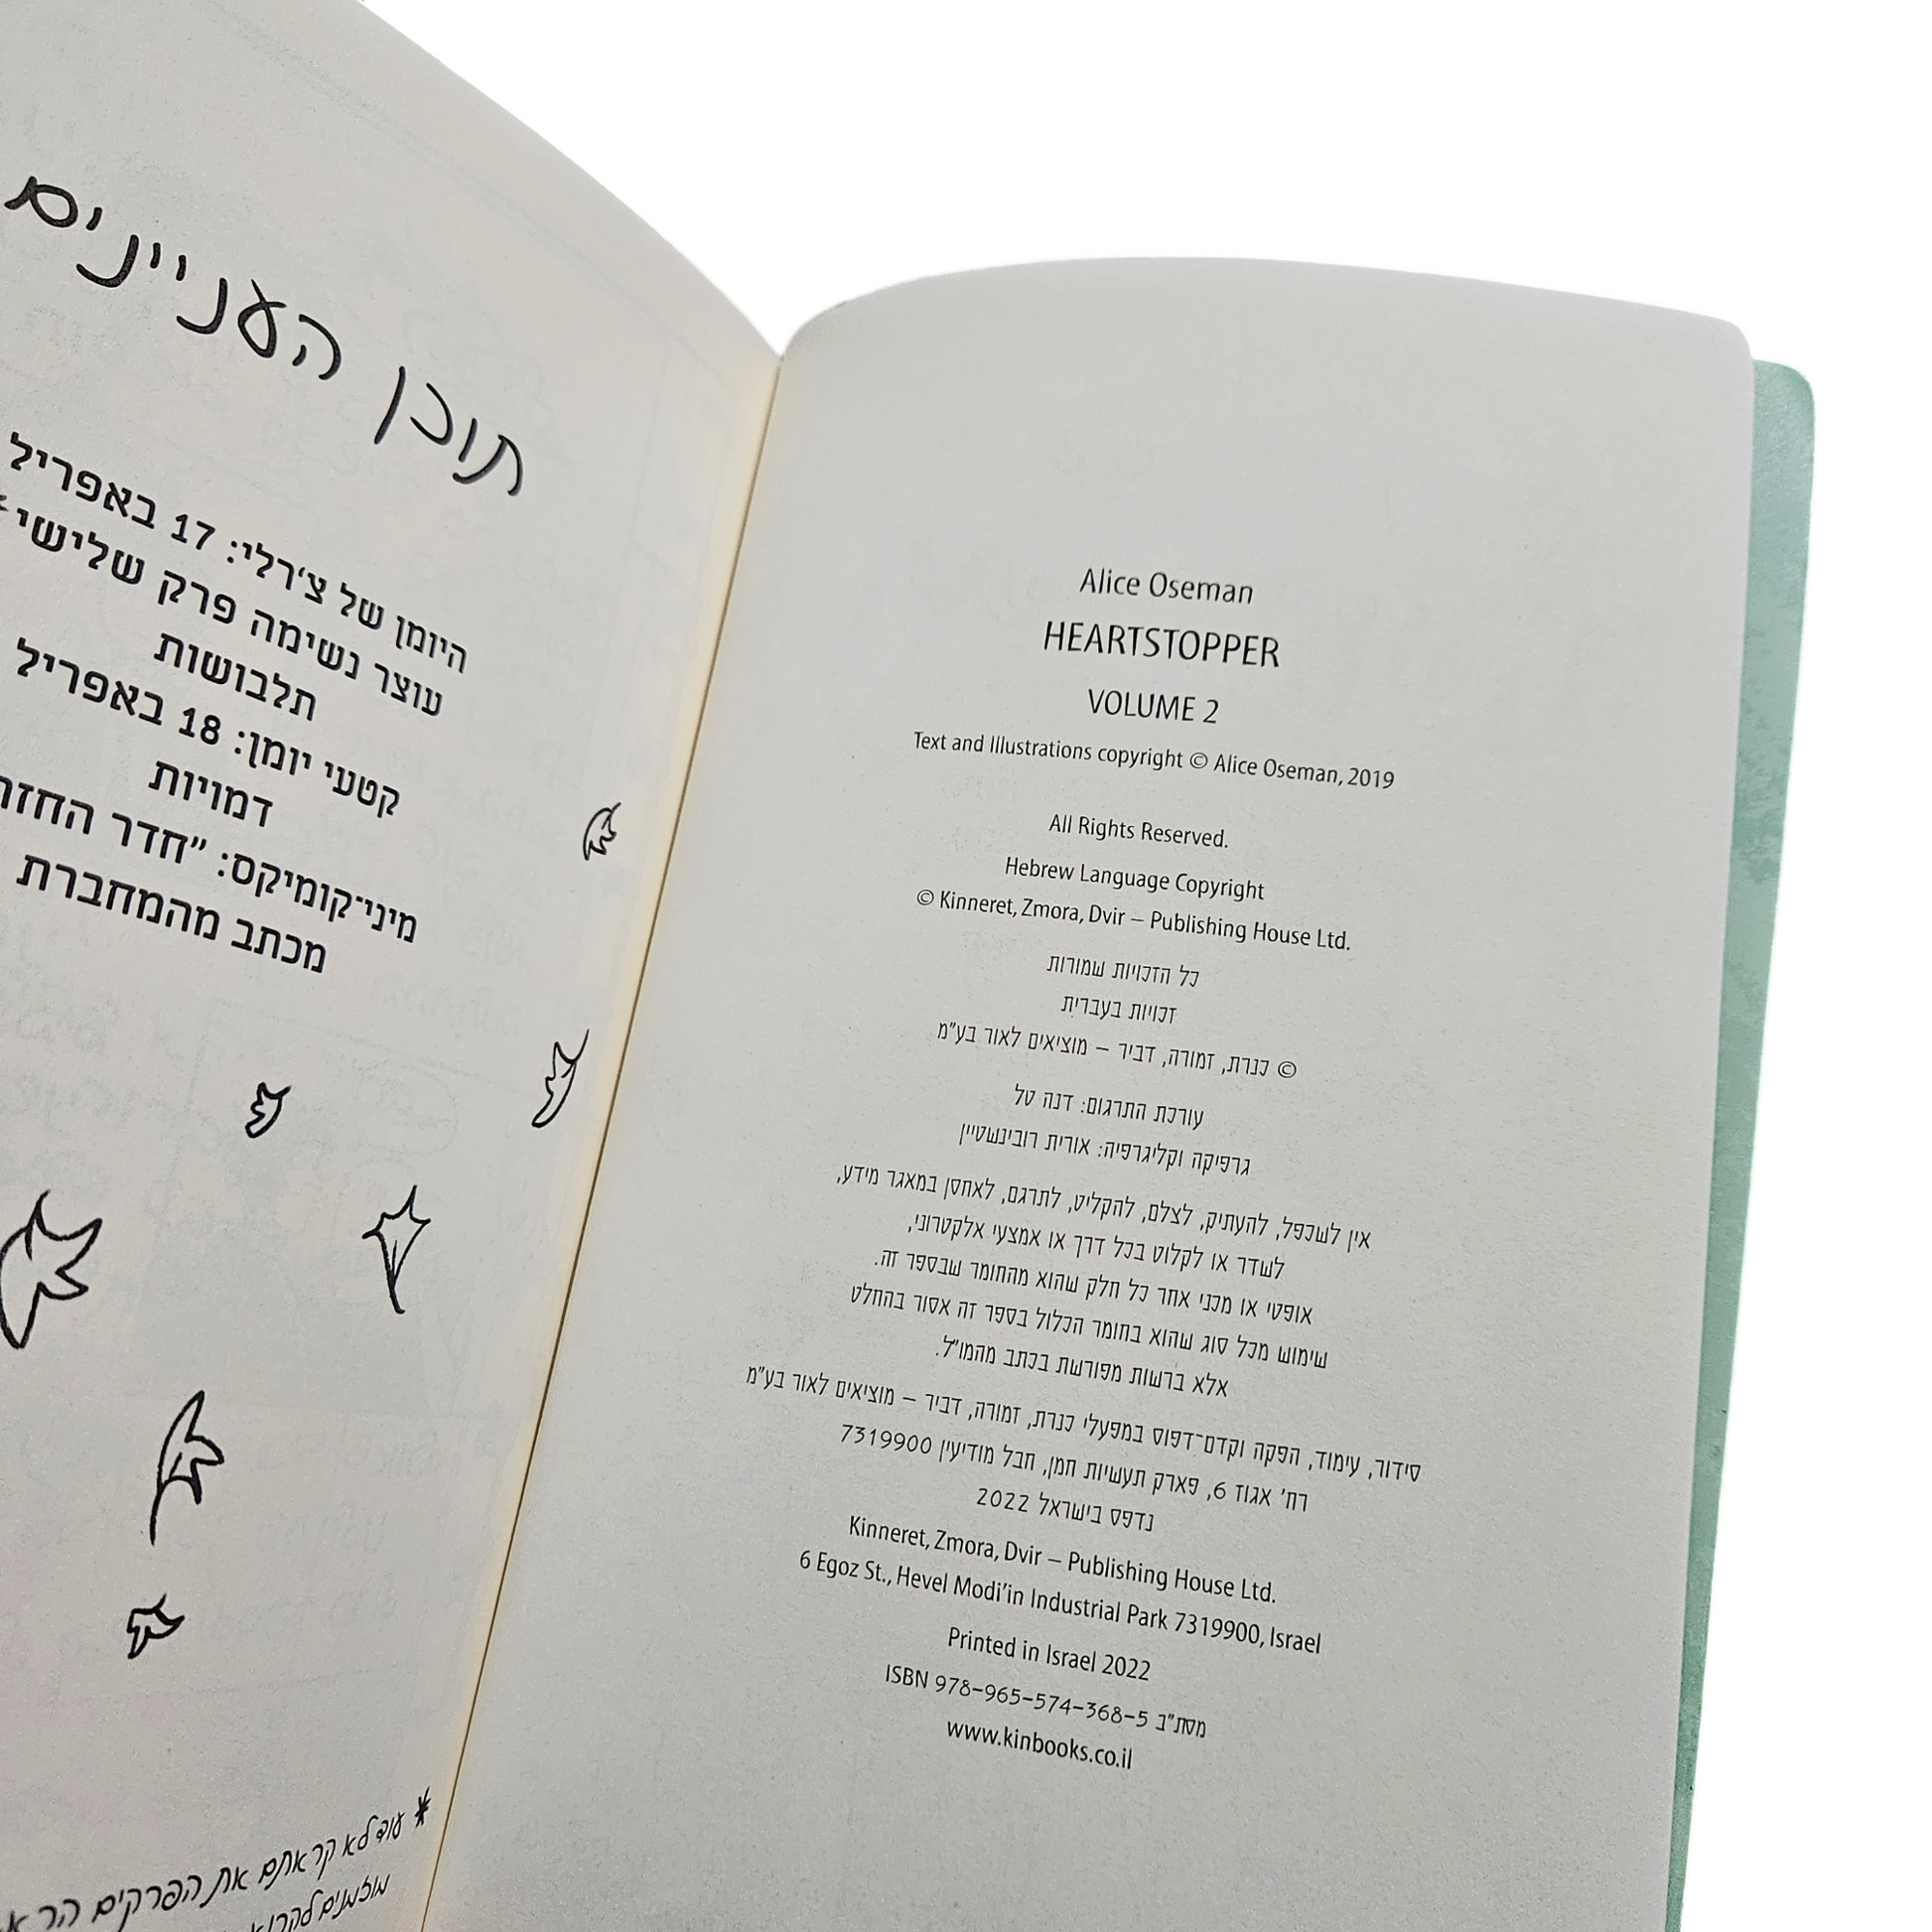 Alice Oseman
HEARTSTOPPER
VOLUME 2
Text and Illustrations copyright © Alice Oseman, 2019
All Rights Reserved.
Hebrew Language Copyright
© Kinneret, Zmora, Dvir – Publishing House Ltd.
כל הזכויות שמורות
זכויות בעברית
© כנרת, זמורה, דביר – מוציאים לאור בע"מ
עורכת התרגום: דנה טל
גרפיקה וקליגרפיה: אורית רובינשטיין
אין לשכפל, להעתיק, לצלם, להקליט, לתרגם, לאחסן במאגר מידע,
לשדר או לקלוט בכל דרך או אמצעי אלקטרוני,
אופטי או מכני אחר כל חלק שהוא מהחומר שבספר זה.
שימוש מכל סוג שהוא בחומר הכלול בספר זה אסור בהחלט
אלא ברשות מפורשת בכתב מהמו"ל.
סידור, עימוד, הפקה וקדם־דפוס במפעלי כנרת, זמורה, דביר – מוציאים לאור בע"מ
רח' אגוז 6, פארק תעשיות חמן, חבל מודיעין 7319900
נדפס בישראל 2022
Kinneret, Zmora, Dvir – Publishing House Ltd.
6 Egoz St., Hevel Modi'in Industrial Park 7319900, Israel
Printed in Israel 2022
מסת"ב ISBN 978-965-574-368-5
www.kinbooks.co.il
תוכן העניינים
היומן של צ'רלי: 17 באפריל
עוצר נשימה פרק שלישי*
תלבושות
קטעי יומן: 18 באפריל
דמויות
מיני־קומיקס: "חדר
מכתב מהמחברת
* עוד לא קראתם את הפרקים
מוזמנים